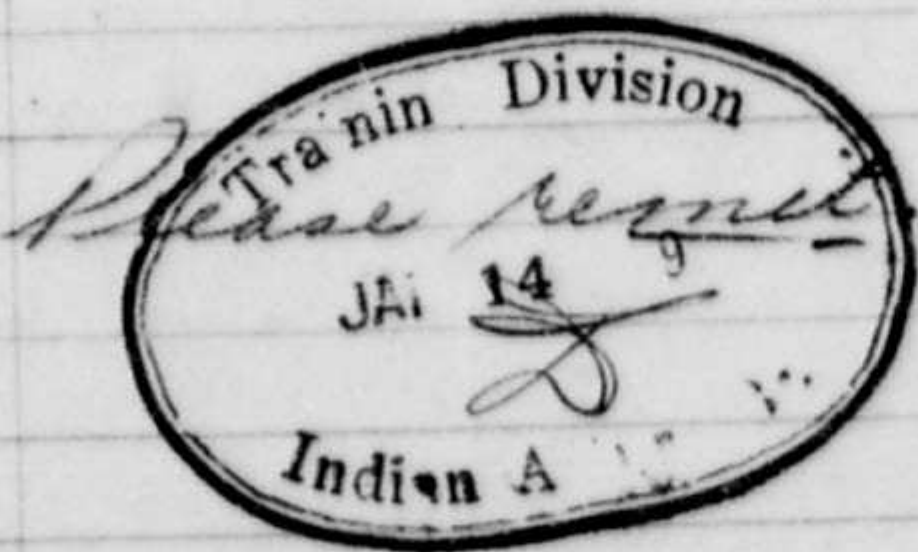 Tra nin Division
Please remit
JAN 14 9
Indian A